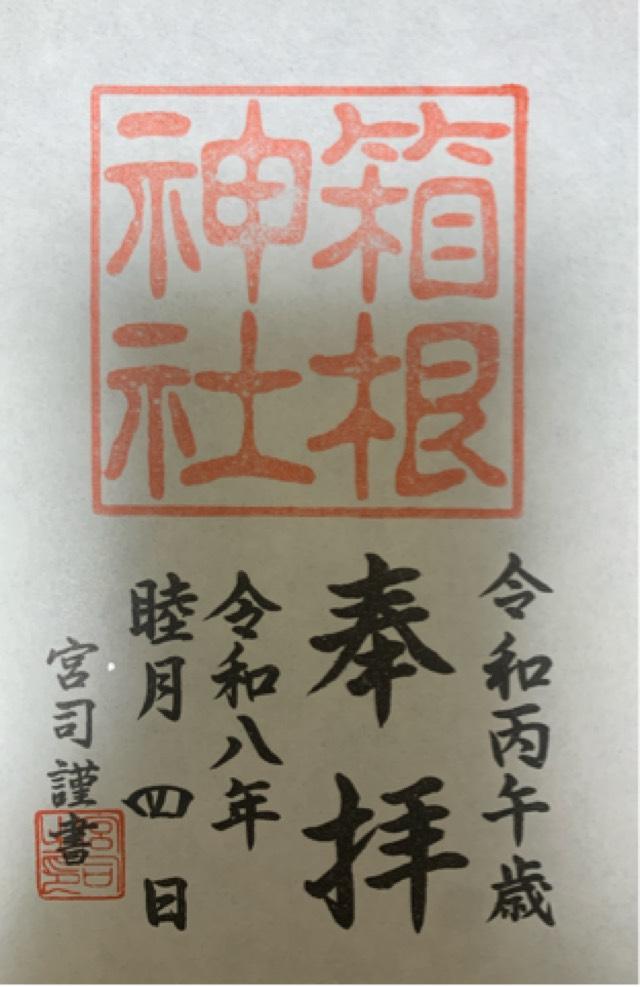 箱根
神社
令和丙午歳
奉拝
令和八年
睦月四日
宮司謹書